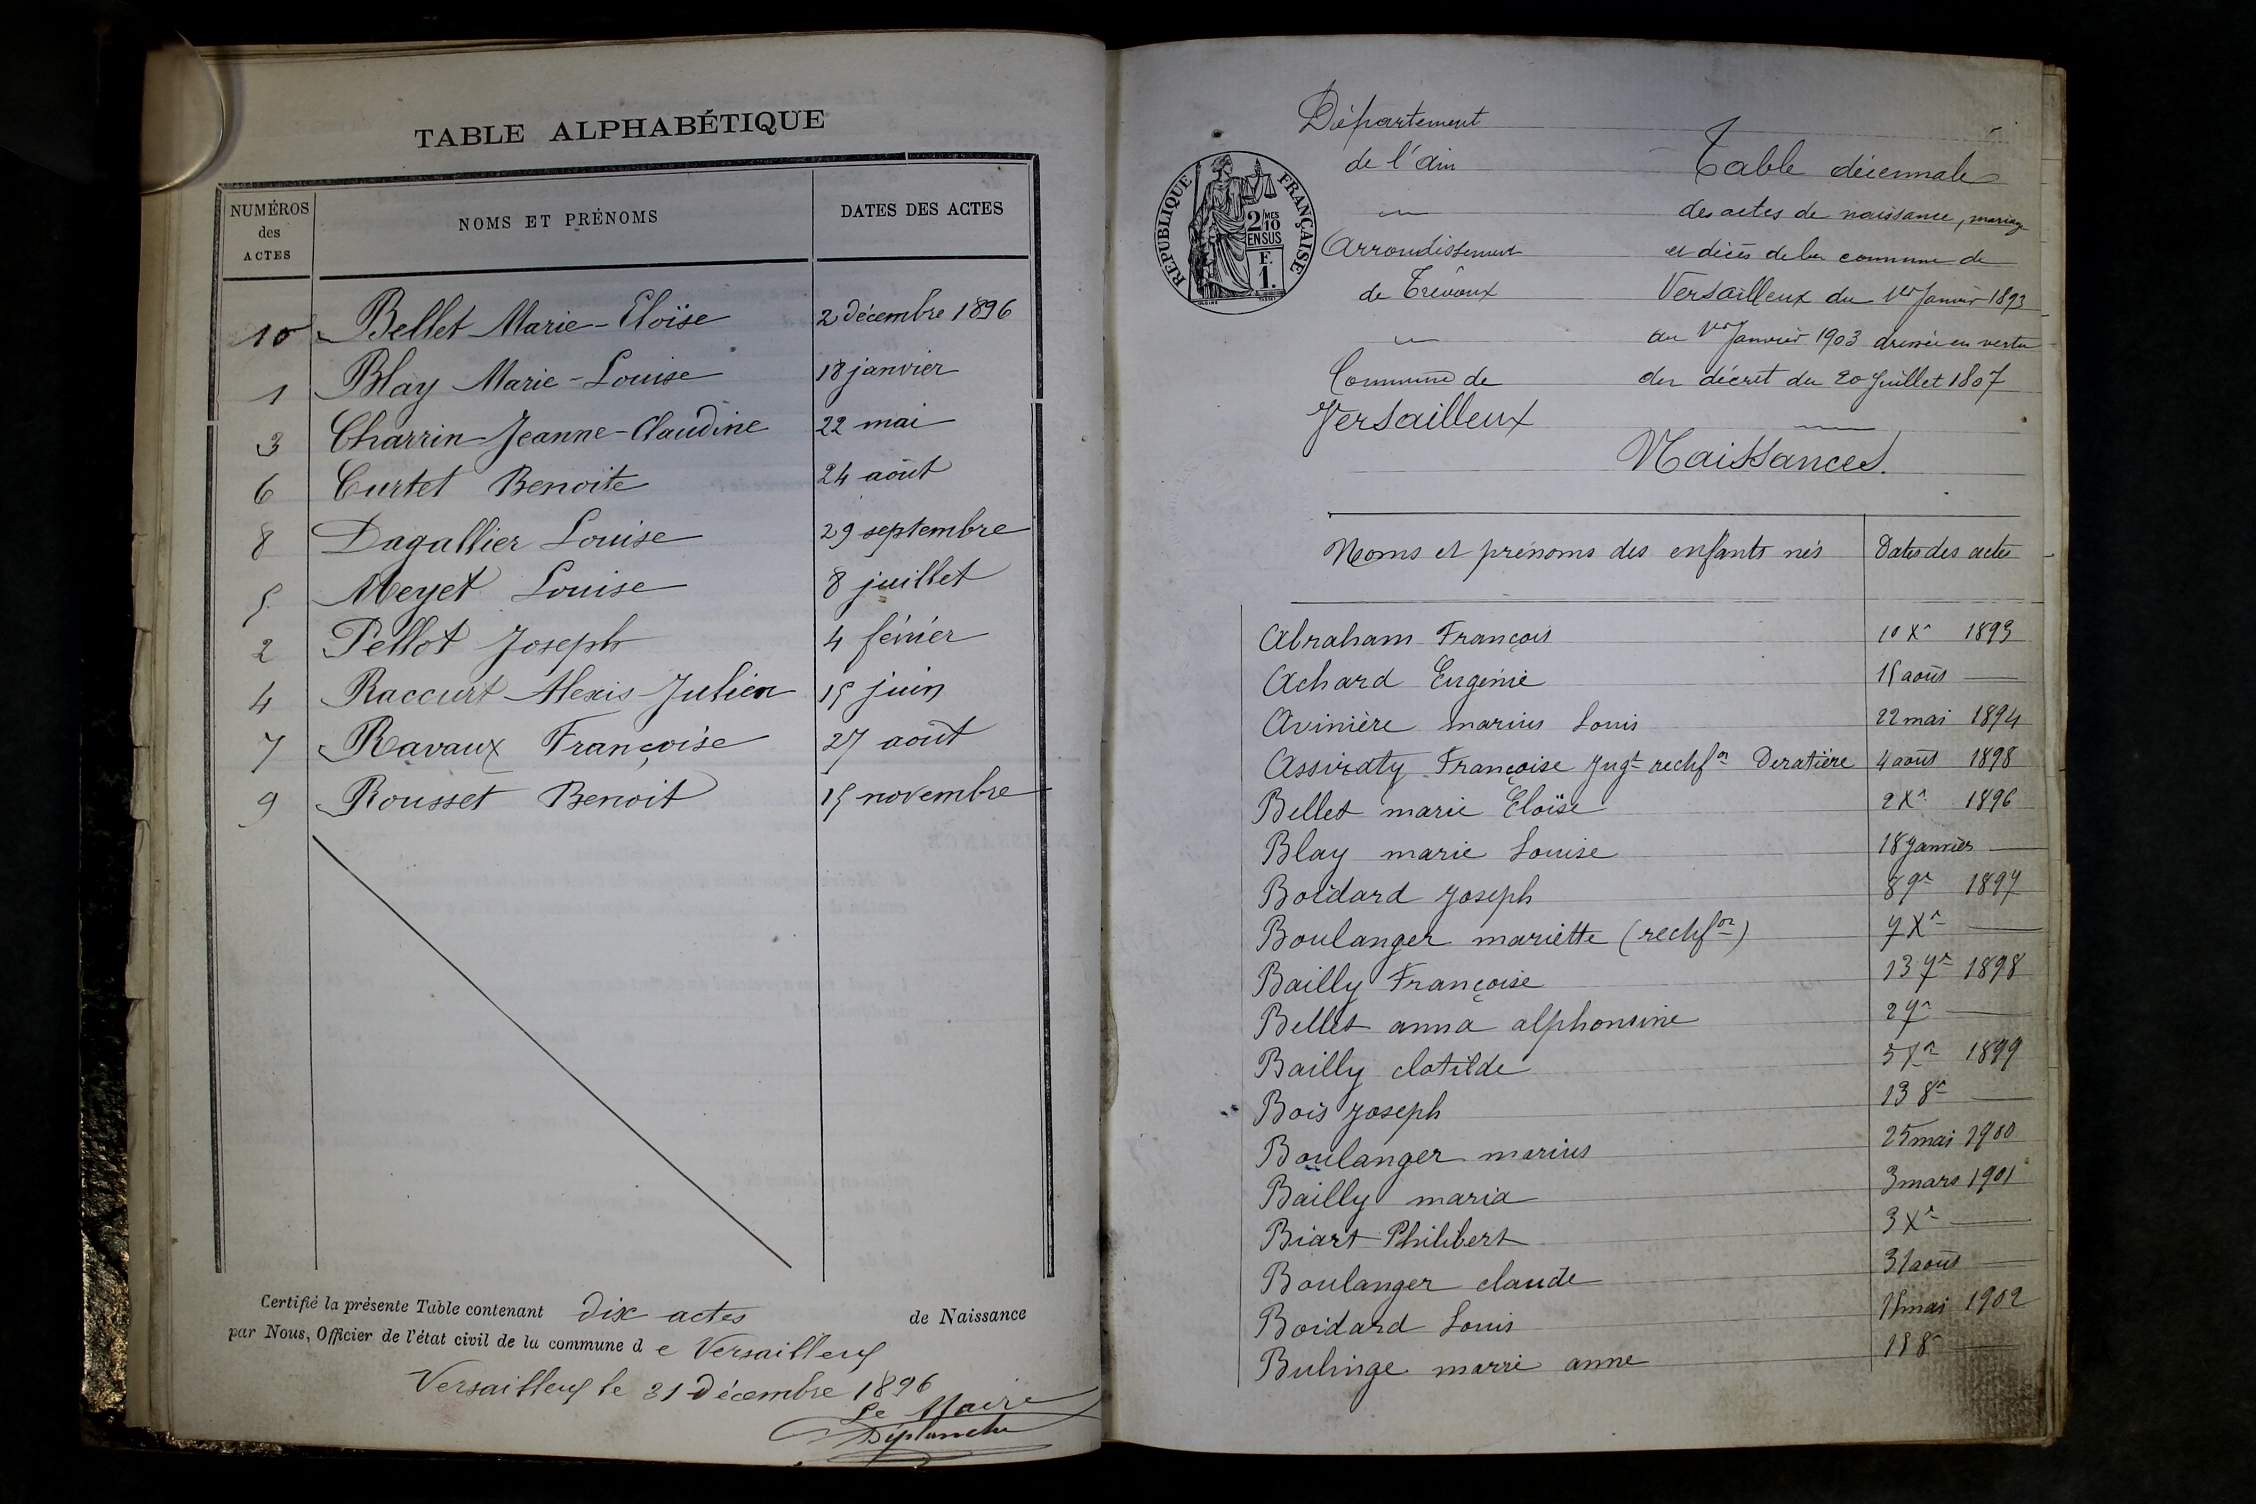 TABLE ALPHABÉTIQUE
NUMÉROS des ACTES NOMS ET PRÉNOMS DATES DES ACTES
10 Bellet Marie-Eloïse 2 décembre 1896
1 Blay Marie-Louise 18 janvier
3 Charrin Jeanne-Claudine 22 mai
6 Curtet Benoite 24 août
8 Dagallier Louise 29 septembre
5 Meyet Louise 8 juillet
2 Pellot Joseph 4 février
4 Raccurt Alexis Julien 15 juin
7 Ravaux Françoise 27 août
9 Rousset Benoit 15 novembre
Certifié la présente Table contenant dix actes de Naissance
par Nous, Officier de l'état civil de la commune de Versailleux
Versailleux le 31 Décembre 1896
Le Maire
Déplanche
Département
de l'Ain
Arrondissement
de Trévoux
Commune de
Versailleux
RÉPUBLIQUE FRANÇAISE
2/10 MES
EN SUS
F.
1.
Table décennale
des actes de naissance, mariage
et décès de la commune de
Versailleux du 1er Janvier 1893
au 1er Janvier 1903 dressée en vertu
du décret du 20 Juillet 1807
Naissances.
Noms et prénoms des enfants nés Dates des actes
Abraham François 10 Xre 1893
Achard Eugénie 15 août —
Avinière marius Louis 22 mai 1894
Assiraty Françoise Jugt rectifon Deratière 4 août 1898
Bellet marie Eloïse 2 Xre 1896
Blay marie Louise 18 Janvier —
Boidard Joseph 8 9re 1897
Boulanger mariette (rectifon) 7 Xre —
Bailly Françoise 13 7re 1898
Bellet anna alphonsine 2 7re —
Bailly clotilde 5 Xre 1899
Bois Joseph 13 8re —
Boulanger marius 25 mai 1900
Bailly maria 3 mars 1901
Biart Philibert 3 Xre —
Boulanger claude 31 août —
Boidard Louis mai 1902
Bulinge marie anne 8re —